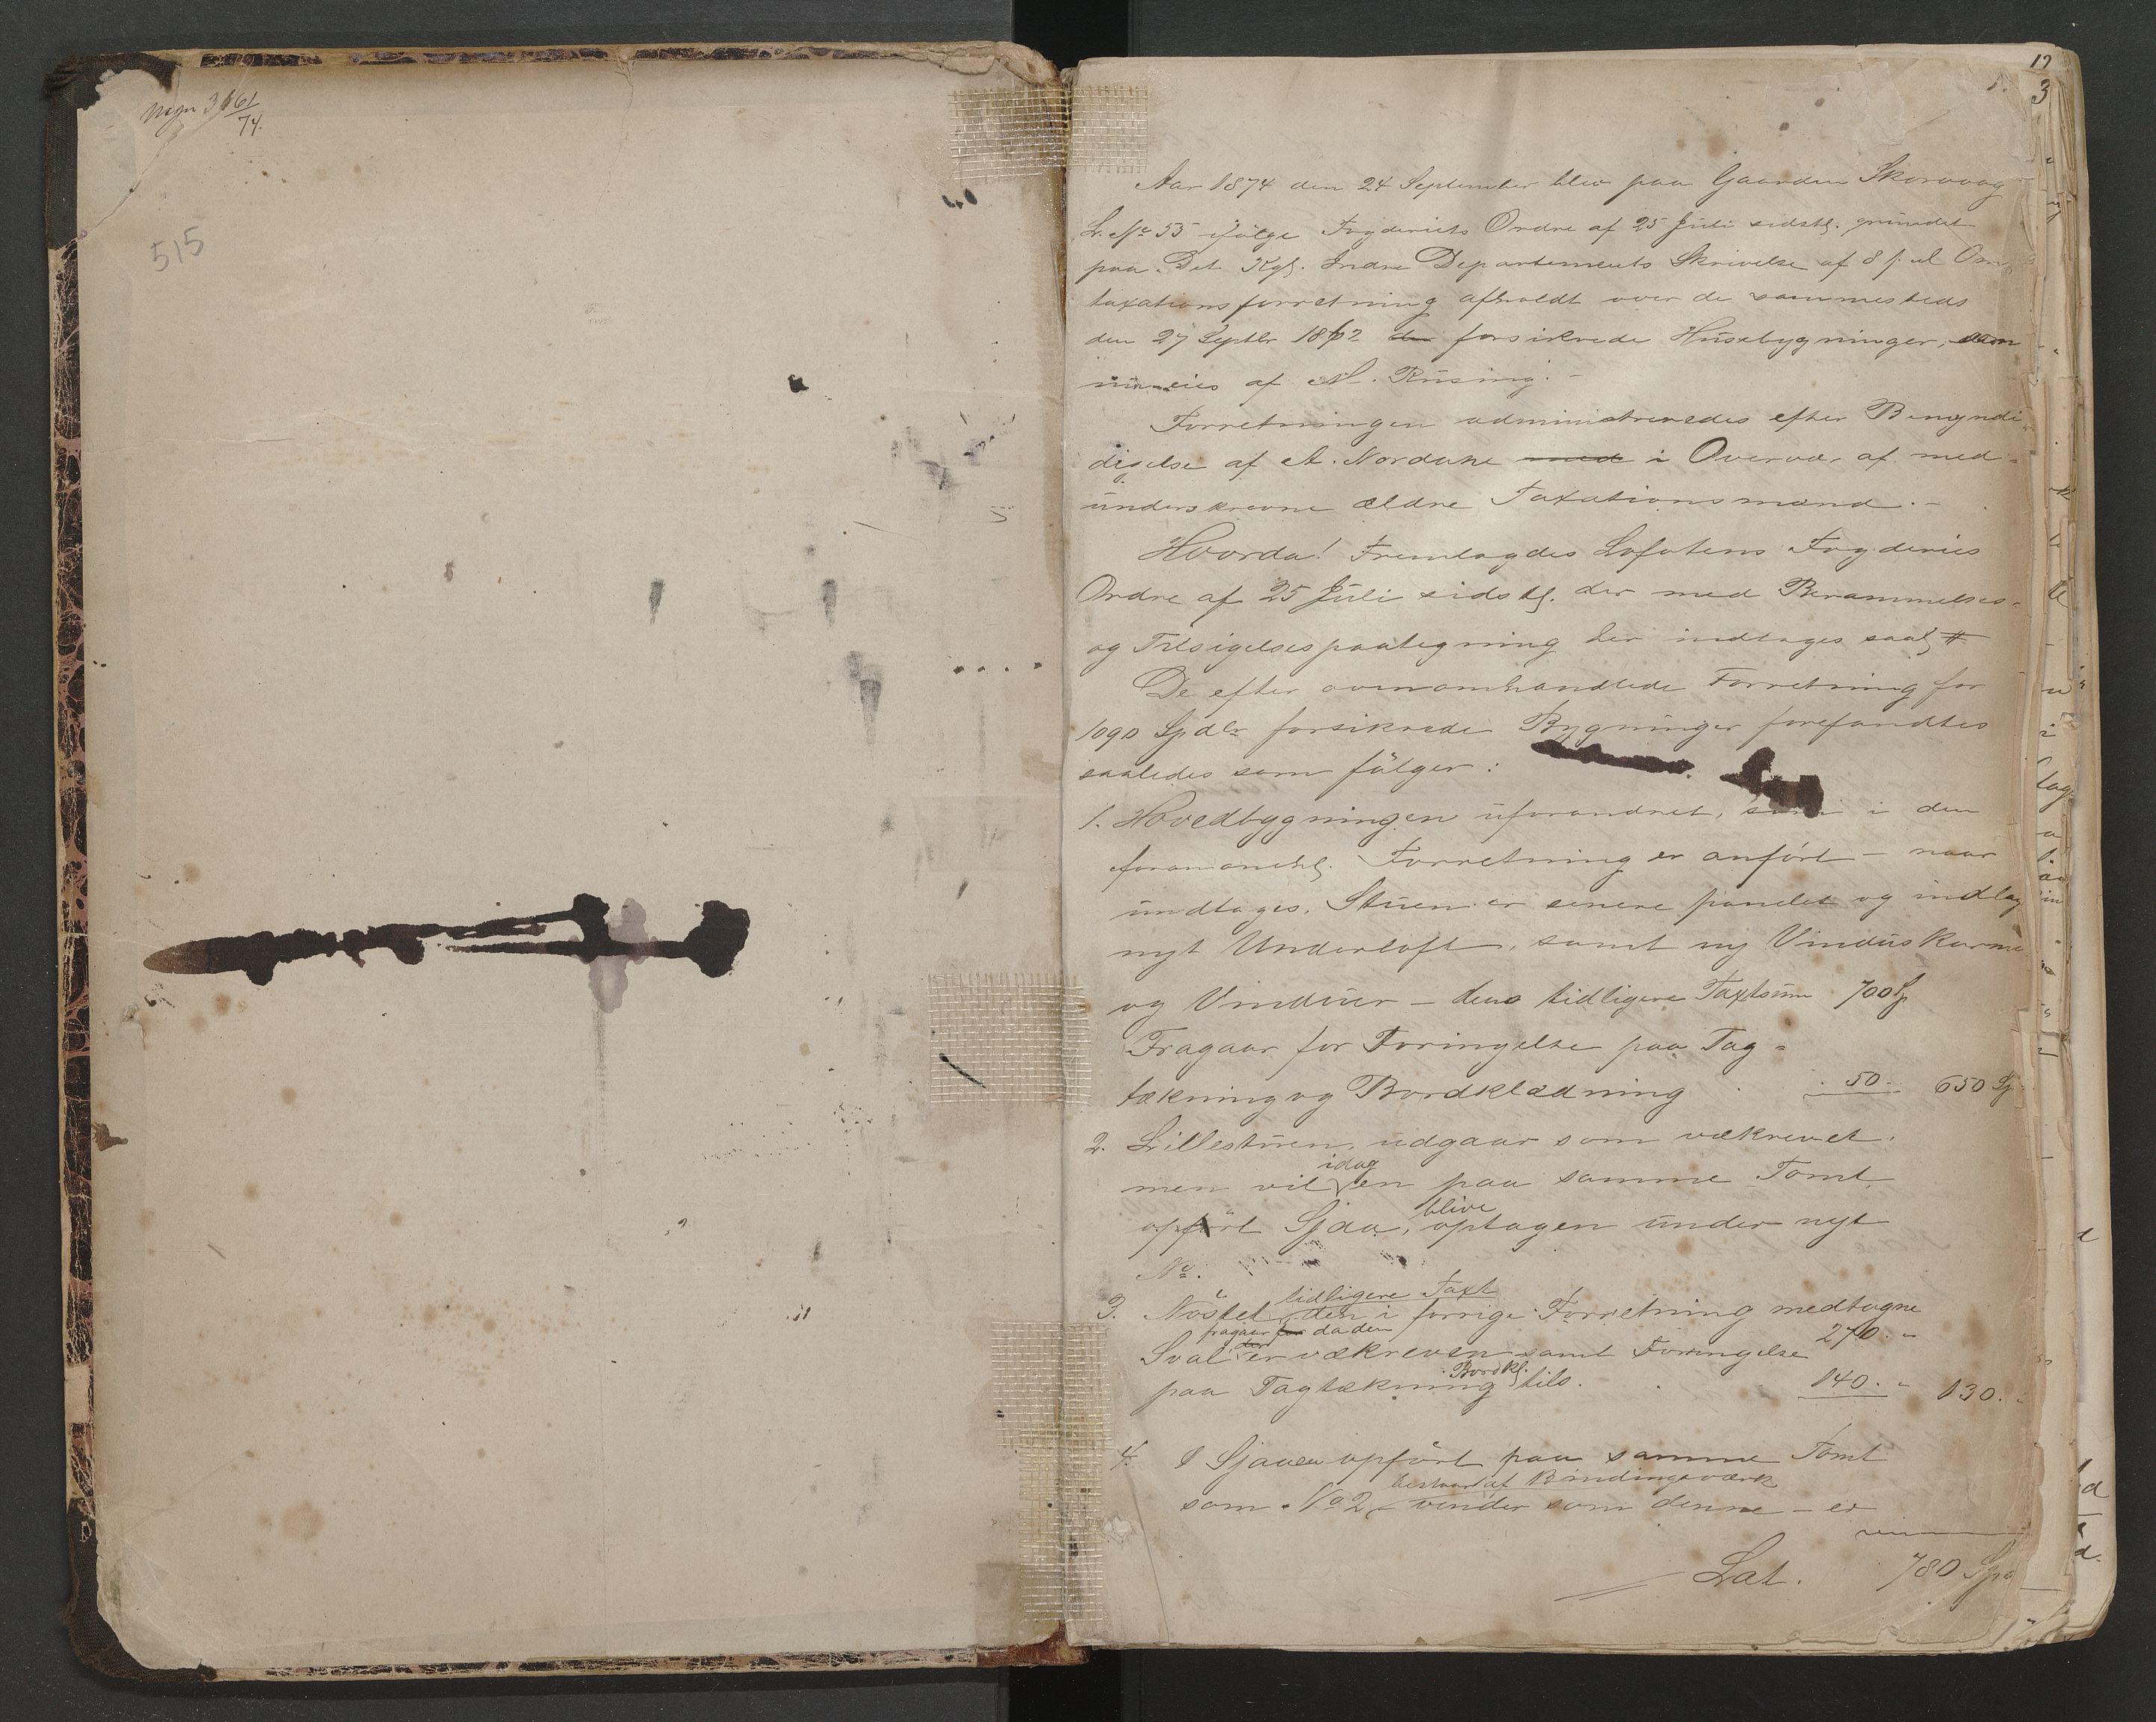 515
1.
3
Aar 1874 den 24 September blev paa Gaarden Skorvaag
L. No 55 ifølge Fogderiets Ordre af 25 Juli sidstl. grundet
paa Det Kgl. Indre Departements Skrivelse af 8 s. M. Om
taxationsforretning afholdt over de sammesteds
den 27 Septbr 1862 forsikrede Husebygninger, som
nu eies af Rüsing.
Forretningen administreredes efter Bemyndi
digelse af A. Nordahl med i Overvær af med-
underskrevne ældre Taxationsmænd.
Hvorda! Fremlagdes Lofotens Fogderies
Ordre af 25 Juli sidstl. der med Berammelses-
og Tilsigelsespaategning her indtages saal #
De efter ovenomhandlede Forretning for
1090 Spdlr forsikrede Bygninger forefandtes
saaledes som følger:
1. Hovedbygningen uforandret, som i den
foranmeldl. Forretning er anført – naar
undtages, Stuen er senere panelet og indlag
nyt Underloft, samt ny Vinduskarme
og Vinduer – dens tidligere Taxtsum 700 Sp
Fragaar for Foringelse paa Tag-
tækning og Bordklædning 50. 650 Sp
2. Lillestuen udgaar som nækrevet.
men vil idag en paa samme Tomt
opført Sjaa, blive optagen under nyt
No.
3. Nöstet tidligere Taxt den i forrige Forretning medtagne 270. "
fragaar for da den
Sval er nækreven samt Foringelse
paa Tagtækning Bordkl. tils. 140. " 130. "
4. Sjaaen opført paa samme Tomt
som No 2, bestaar af Bindingsværk under som denne – er
Lat. 780 Spd